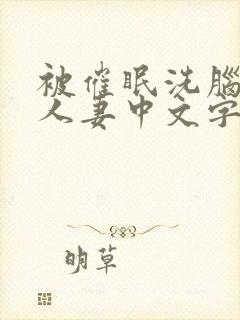 被催眠洗腦
人妻中文字
明草